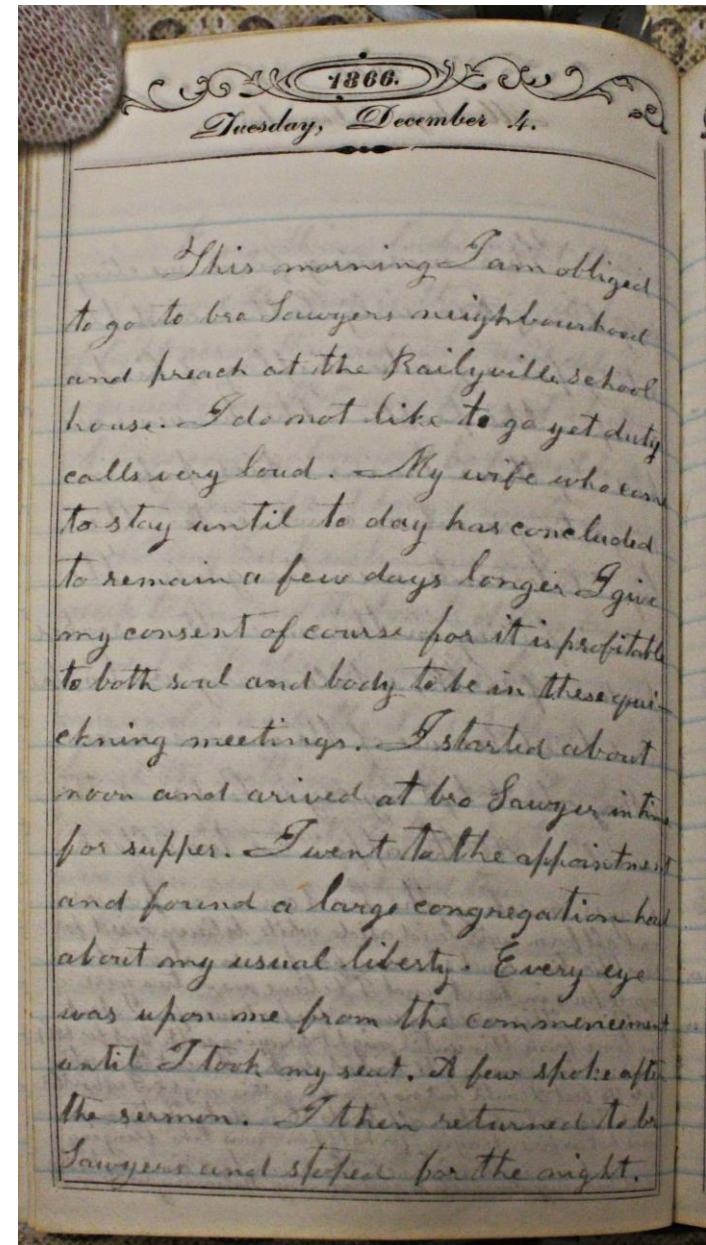 1866.
Tuesday, December 4.
This morning I am obliged
to go to bro Sawyers neighbourhood
and preach at the Railyville school
house. I do not like to go yet duty
calls very loud. My wife who came
to stay until to day has concluded
to remain a few days longer I give
my consent of course for it is profitable
to both soul and body to be in these qui-
ckning meetings. I started about
noon and arived at bro Sawyer in time
for supper. I went to the appointment
and found a large congregation had
about my usual liberty. Every eye
was upon me from the commencement
until I took my seat. A few spoke after
the sermon. I then returned to br
Sawyers and stoped for the night.